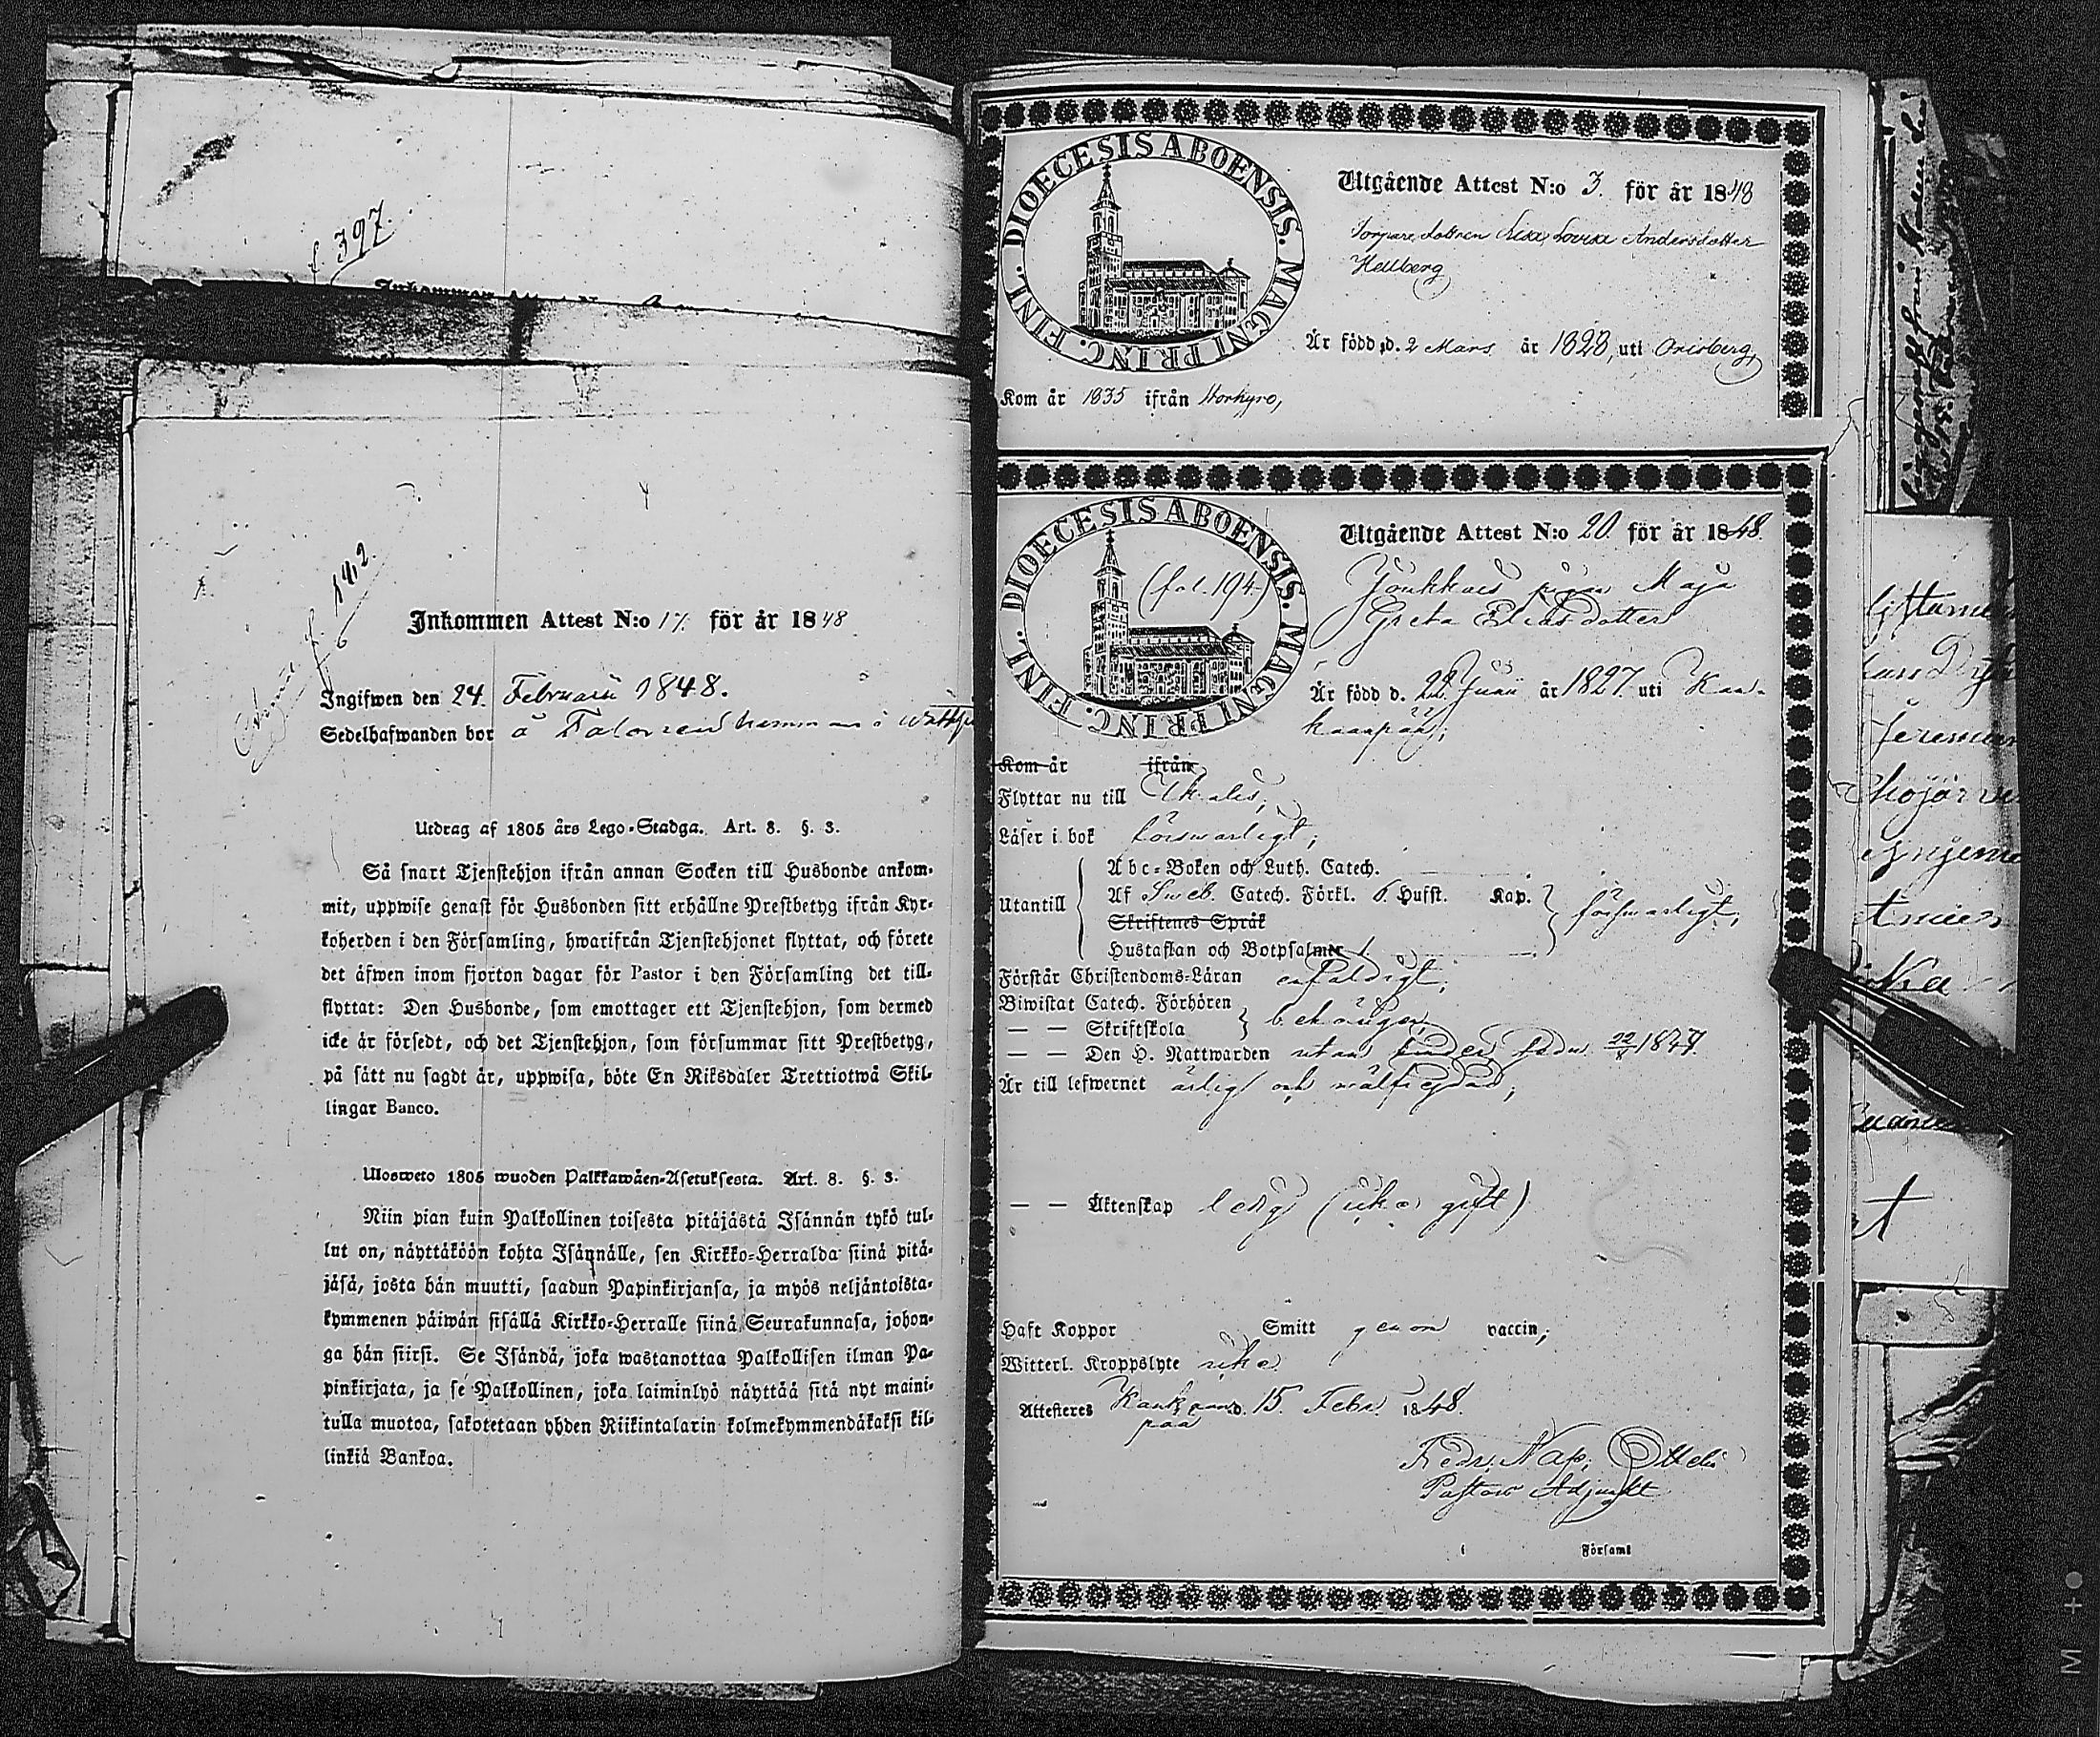 f. 397
f. 192
Inkommen Attest N:o 17. för år 1848
Ingifwen den 24. Februarii 1848.
Sedelhafwanden bor å
Utdrag af 1805 års Lego-Stadga. Art. 8. §. 3.
Så snart Tjenstehjon ifrån annan Socken till Husbonde ankom-
mit, uppwise genast för Husbonden sitt erhållne Prestbetyg ifrån Kyr-
koherden i den Församling, hwarifrån Tjenstehjonet flyttat, och förete
det äfwen inom fjorton dagar för Pastor i den Församling det till-
flyttat: Den Husbonde, som emottager ett Tjenstehjon, som dermed
icke är försedt, och det Tjenstehjon, som försummar sitt Prestbetyg,
på sätt nu sagdt är, uppwisa, böte En Riksdaler Trettiotwå Skil-
lingar Banco.
Uloswето 1805 wuoden Palkkawäen-Asetuksesta. Art. 8. §. 3.
Niin pian kuin Palkollinen toisesta pitäjästä Isännän tykö tul-
lut on, näyttäköön kohta Isännälle, sen Kirkko-Herralda siinä pitä-
jäsä, josta hän muutti, saadun Papinkirjansa, ja myös neljäntoista-
kymmenen päiwän sisällä Kirkko-Herralle siinä Seurakunnasa, johon-
ga hän siirsi. Se Isändä, joka wastanottaa Palkollisen ilman Pa-
pinkirjata, ja se Palkollinen, joka laiminlyö näyttää sitä nyt maini-
tulla muotoa, sakotetaan yhden Riikintalarin kolmekymmendäkaksi kil-
linkiä Bankoa.
DIOECESIS ABOENSIS. MAGNI PRINC. FINL.
Utgående Attest N:o 3. för år 1848
Torpare dottren Lisa Lovisa Andersdotter
Hellberg
Är född d. 2 Mars år 1828, uti Orisberg,
Kom år 1835 ifrån Storkyro,
DIOECESIS ABOENSIS. MAGNI PRINC. FINL.
(fol. 194.)
Utgående Attest N:o 20. för år 1848.
pigan Maja
Greta Eliasdotter
Är född d. 22 Junii år 1827 uti Kan-
kaanpää;
Kom år ifrån
Flyttar nu till Ikalis;
Läser i bok försvarligt;
Abc-Boken och Luth. Catech.
Utantill Af Sveb. Catech. Förkl. 6. Hufst. Kap. försvarligt;
Skriftenes Språk
Hustaflan och Botpsalmer 1.
Förstår Christendoms-Läran enfaldigt;
Biwistat Catech. Förhören
— — Skriftskola behörigen;
— — Den H. Nattwarden utan hinder 1847.
Är till lefwernet ärligt och wälfrejdad;
— — Äktenskap ledig (icke gift)
Haft Koppor Smitt genom vaccin;
Witterl. Kroppslyte icke
Attesteres Kankaanpää d. 15. Febr. 1848.
Fedr. Nap.
Pastors Adjunkt
i Församl
M + ●